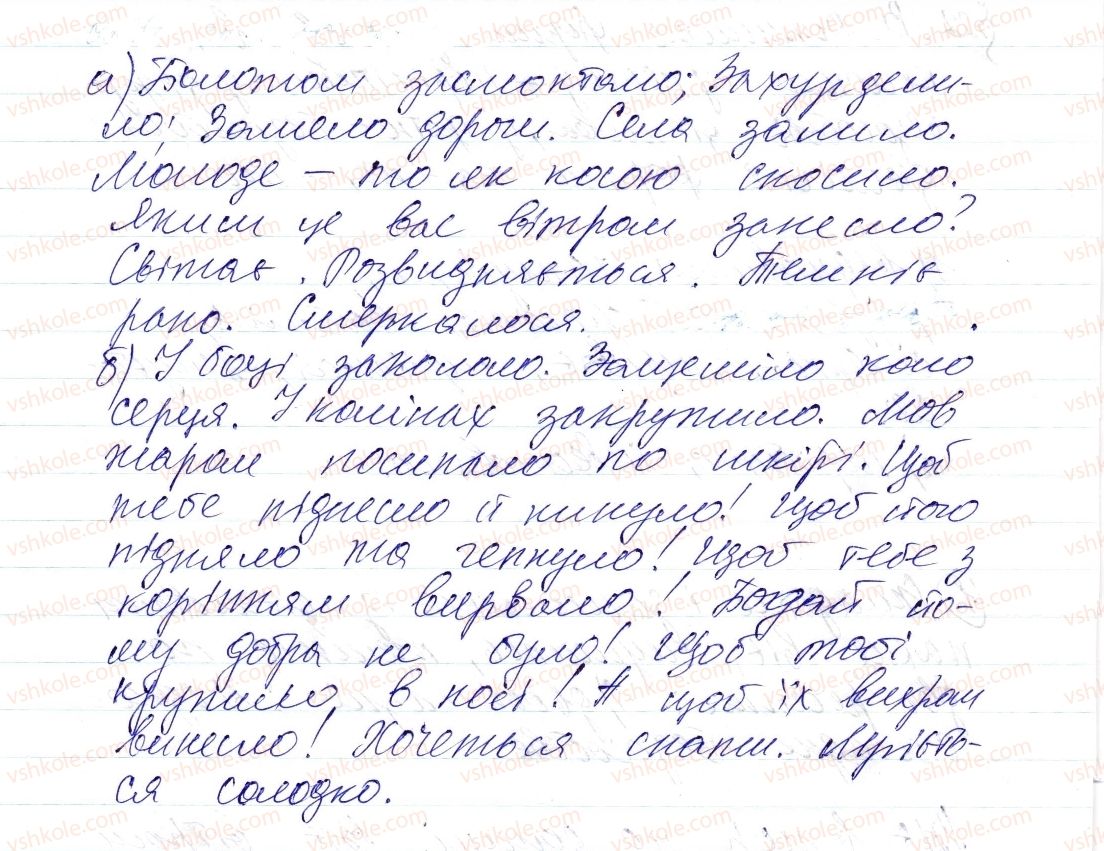 а) Болотом засмоктало; Захурдели-
ло; Замело дороги. Села залило.
Молоде – то як косою скосило.
Яким це вас вітром занесло?
Світає. Розвидняється. Темніє
рано. Смеркалося.
б) У боці закололо. Защеміло коло
серця. У колінах закрутило. Мов
жаром посипало по шкірі. Щоб
тебе піднесло й кинуло! Щоб його
підняло та гепнуло! Щоб тебе з
корінням вирвало! Бодай йо-
му добра не було! Щоб тобі
крутило в носі! А щоб їх вихром
винесло! Хочеться спати. Мрієть-
ся солодко.